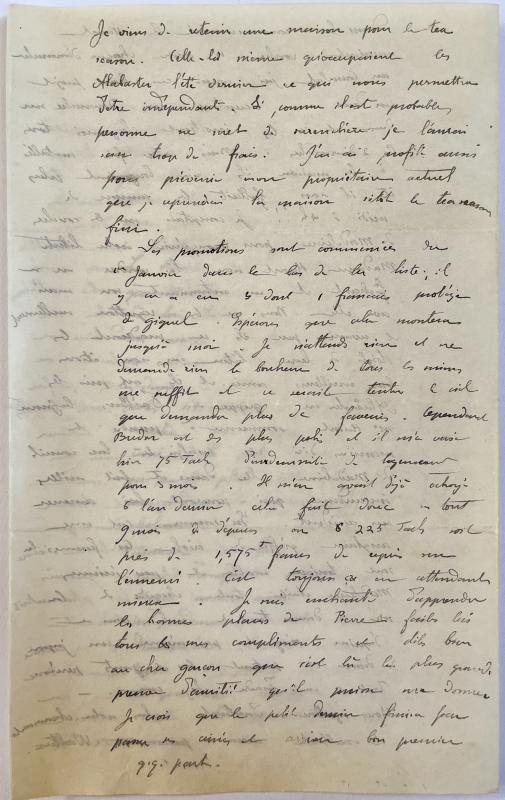 Je viens de retenir une maison pour la tea
season. Celle-là même qu'occupaient les
Alabaster l'été dernier ce qui nous permettra
d'être indépendants. Si, comme il est probable,
personne ne vient de je l'aurai
sans trop de frais. J'ai profité aussi
pour prévenir mon propriétaire actuel
que je reprendrai la maison sitôt la tea season
finie.
Les promotions sont commencées du
1er Janvier dans le bas de la liste; il
y en a eu 3 dont 1 français protégé
de Giquel. Espérons que cela montera
jusqu'à moi. Je n'attends rien et ne
demande rien le bonheur de tous les miens
me suffit et ce serait tenter le ciel
que demander plus de faveurs. Cependant
Bredon est des plus polis et il m'a
bien 75 Taels d'indemnité de logement
pour 3 mois. Il m'en avait déjà octroyé
6 l'an dernier cela fait donc en tout
9 mois à on 225 Taels soit
près de 1,575 f francs de repris sur
l'ennemi. C'est toujours ça en attendant
mieux. Je suis enchanté d'apprendre
les bonnes places de Pierre faites lui
tous mes compliments et dites bien
au cher garçon que c'est là la plus grande
preuve d'amitié qu'il puisse me donner
Je crois que le petit dernier finira par
passer ses aînés et arriver bon premier